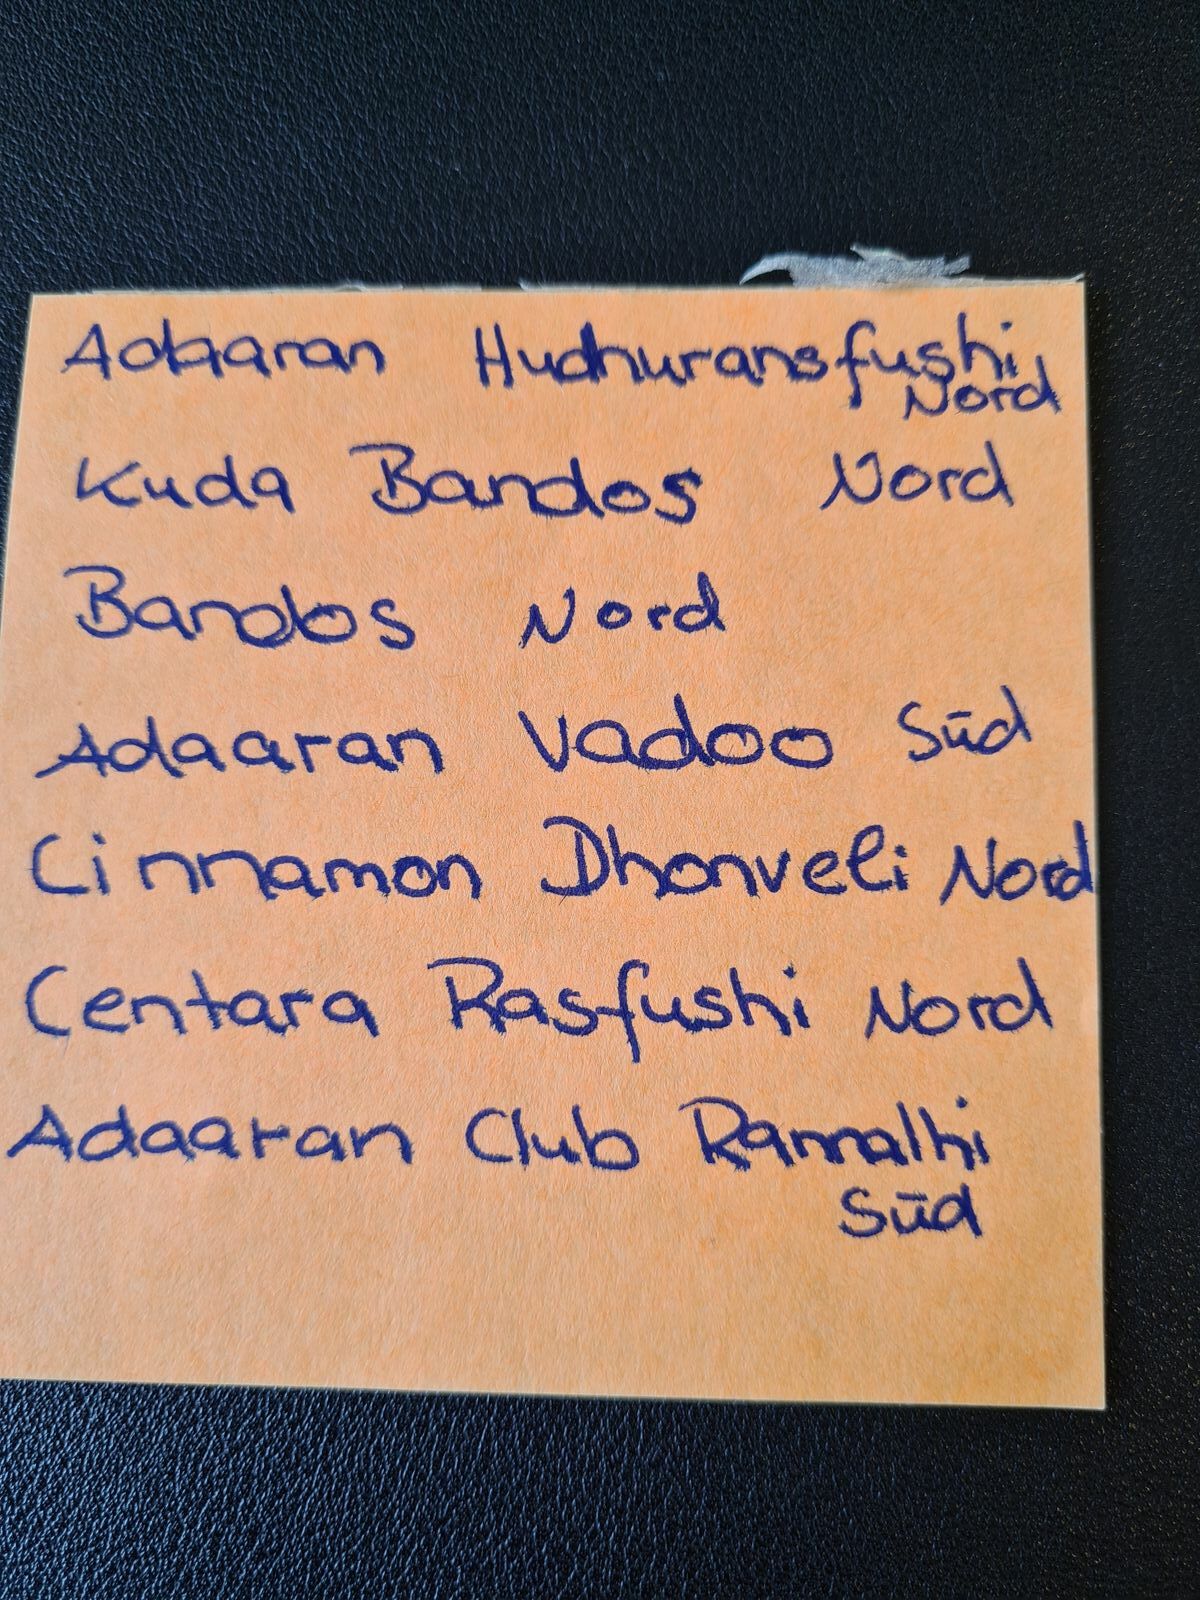 Adaaran Hudhuransfushi
Nord
Kuda Bandos Nord
Bandos Nord
Adaaran Vadoo Süd
Cinnamon Dhonveli Nord
Centara Rasfushi Nord
Adaaran Club Rannalhi
Süd